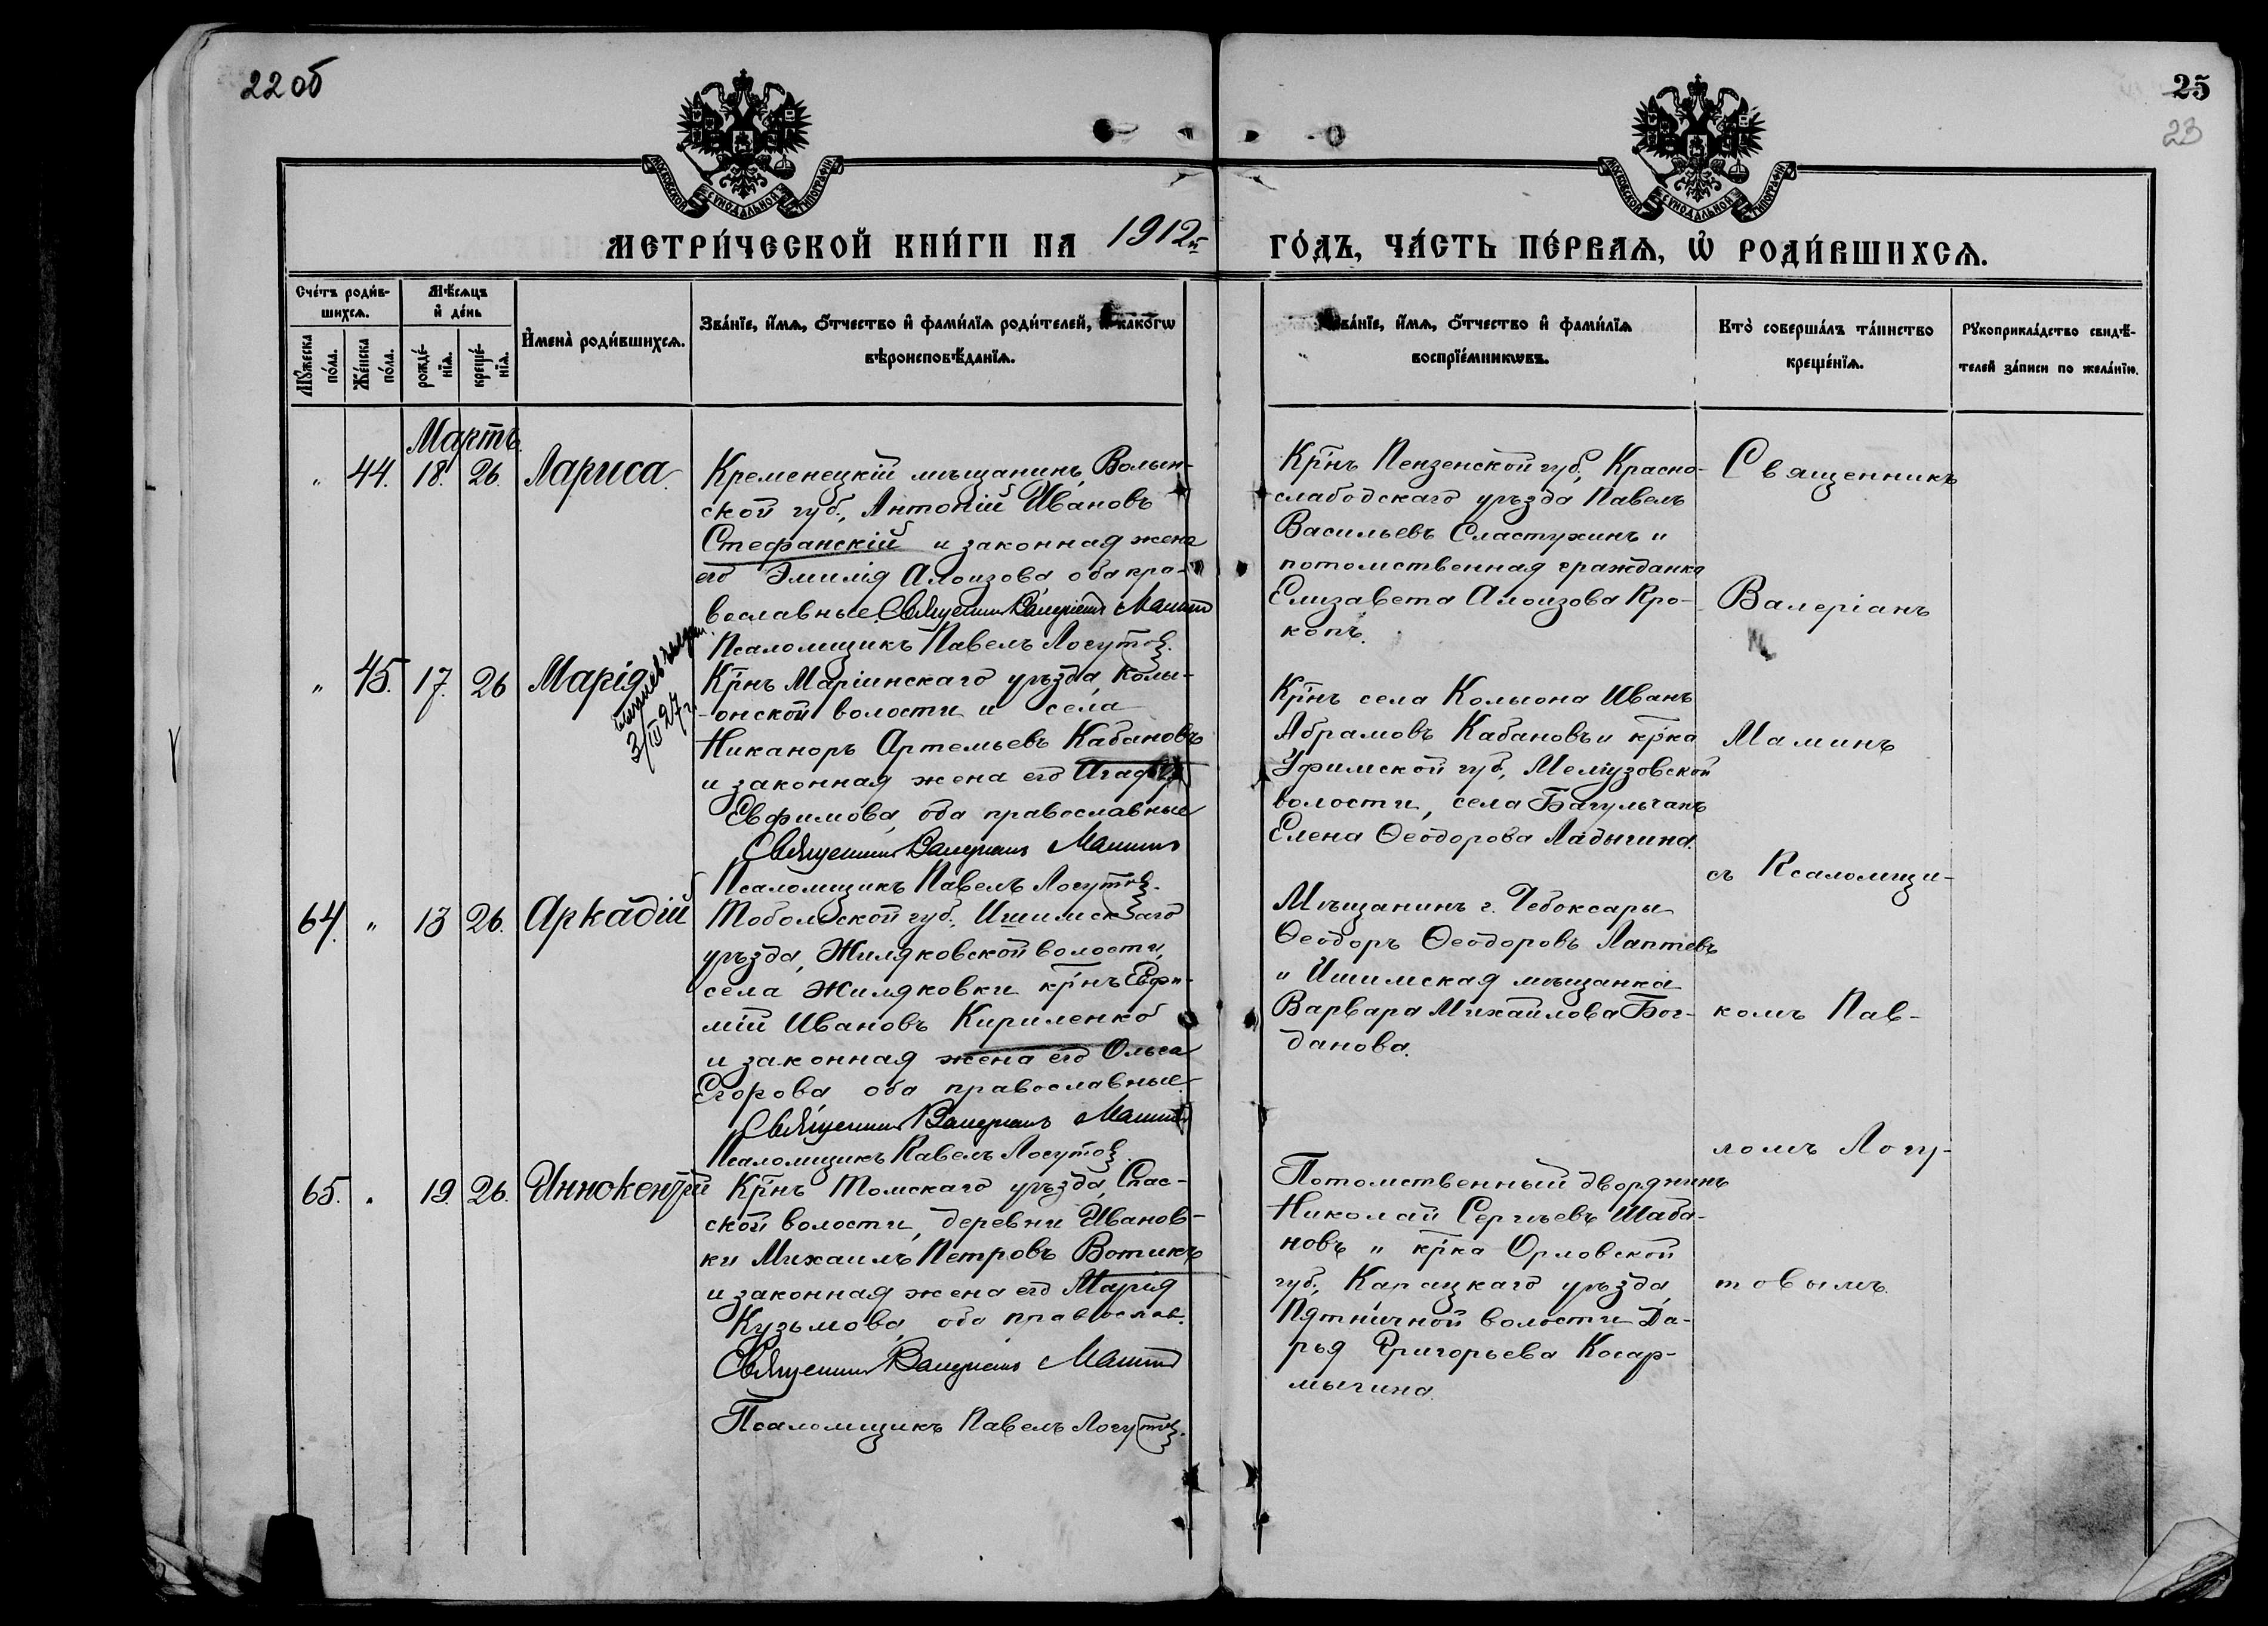 22 об
25
23
МОСКОВСКОЙ СѴНОДАЛЬНОЙ ТИПОГРАФІИ
МОСКОВСКОЙ СѴНОДАЛЬНОЙ ТИПОГРАФІИ
МЕТРИ́ЧЕСКОЙ КНИ́ГИ НА 1912й ГО́ДЪ, ЧА́СТЬ ПЕ́РВАѦ, Ѡ҆ РОДИ́ВШИХСѦ.
Сче́тъ роди́в-
шихсѧ.
Мѣ́сѧцъ
и҆ де́нь
И҆мена̀ роди́вшихсѧ.
Зва́нїе, и҆́мѧ, ѻ҆́тчество и҆ фами́лїѧ роди́телей, и҆ како́гѡ
вѣроисповѣ́данїѧ.
Зва́нїе, и҆́мѧ, ѻ҆́тчество и҆ фами́лїѧ
воспрїе́мникѡвъ.
Кто̀ соверша́лъ та́инство
креще́нїѧ.
Рꙋкоприкла́дство свидѣ́-
телей за́писи по жела́нїю.
Мꙋ́жеска
по́ла.
Же́нска
по́ла.
рожде́-
нїѧ.
креще́-
нїѧ.
Мартъ.
" 44. 18. 26. Лариса.
Кременецкій мѣщанинъ, Волын-
ской губ., Антоній Ивановъ
Стефанскій и законная жена
его Эмилія Алоизова оба пра-
вославные. Священникъ Валеріанъ Маминъ
Псаломщикъ Павелъ Логутов.
Кр̃нъ Пензенской губ., Красно-
слабодскаго уѣзда Павелъ
Васильевъ Сластухинъ и
потомственная гражданка
Елизавета Алоизова Кро-
копъ.
" 45. 17. 26 Марія
3/III 27 г.
Кр̃нъ Маріинскаго уѣзда, Колы-
онской волости и села
Никаноръ Артемьевъ Кабановъ
и законная жена его Агафья
Евфимова, оба православные
Священникъ Валеріанъ Маминъ
Псаломщикъ Павелъ Логутов.
Кр̃нъ села Колыона Иванъ
Абрамовъ Кабановъ и кр̃ка
Уфимской губ., Мелеузовской
волости, села Багульчанъ
Елена Ѳеодорова Ладыгина.
64. " 13 26. Аркадій
Тобольской губ. Ишимскаго
уѣзда, Жиляковской волости,
села Жиляковки кр̃нъ Евфи-
мій Ивановъ Кириленко
и законная жена его Ольга
Егорова оба православные.
Священникъ Валеріанъ Маминъ
Псаломщикъ Павелъ Логутов.
Мѣщанинъ г. Чебоксары
Ѳеодоръ Ѳеодоровъ Лаптевъ
и Ишимская мѣщанка
Варвара Михайлова Бог-
данова.
65. " 19. 26. Иннокентій
Кр̃нъ Томскаго уѣзда, Спас-
ской волости, деревни Иванов-
ки Михаилъ Петровъ Вотикъ
и законная жена его Марія
Кузьмова, оба православ.
Священникъ Валеріанъ Маминъ
Псаломщикъ Павелъ Логутов.
Потомственный дворянинъ
Николай Сергѣевъ Шаба-
новъ и кр̃ка Орловской
губ., Карацкаго уѣзда,
Пятничной волости Да-
рья Григорьева Косар-
мыгина.
Священникъ
Валеріанъ
Маминъ
съ Псаломщи-
комъ Пав-
ломъ Логу-
товымъ.